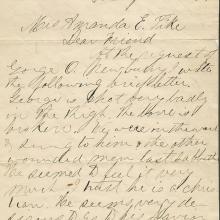 Mrs Amanda E. Fike
Dear Friend
At the request of
George O. Newbury I write
the following brief letter.
George is shot very badly
in the thigh. the bone is
broken. We were in the ward
dining to him & the other
wounded men last Sabbath
he seemed to feel it very
much. I trust he is a chris
tian. He seems very de-